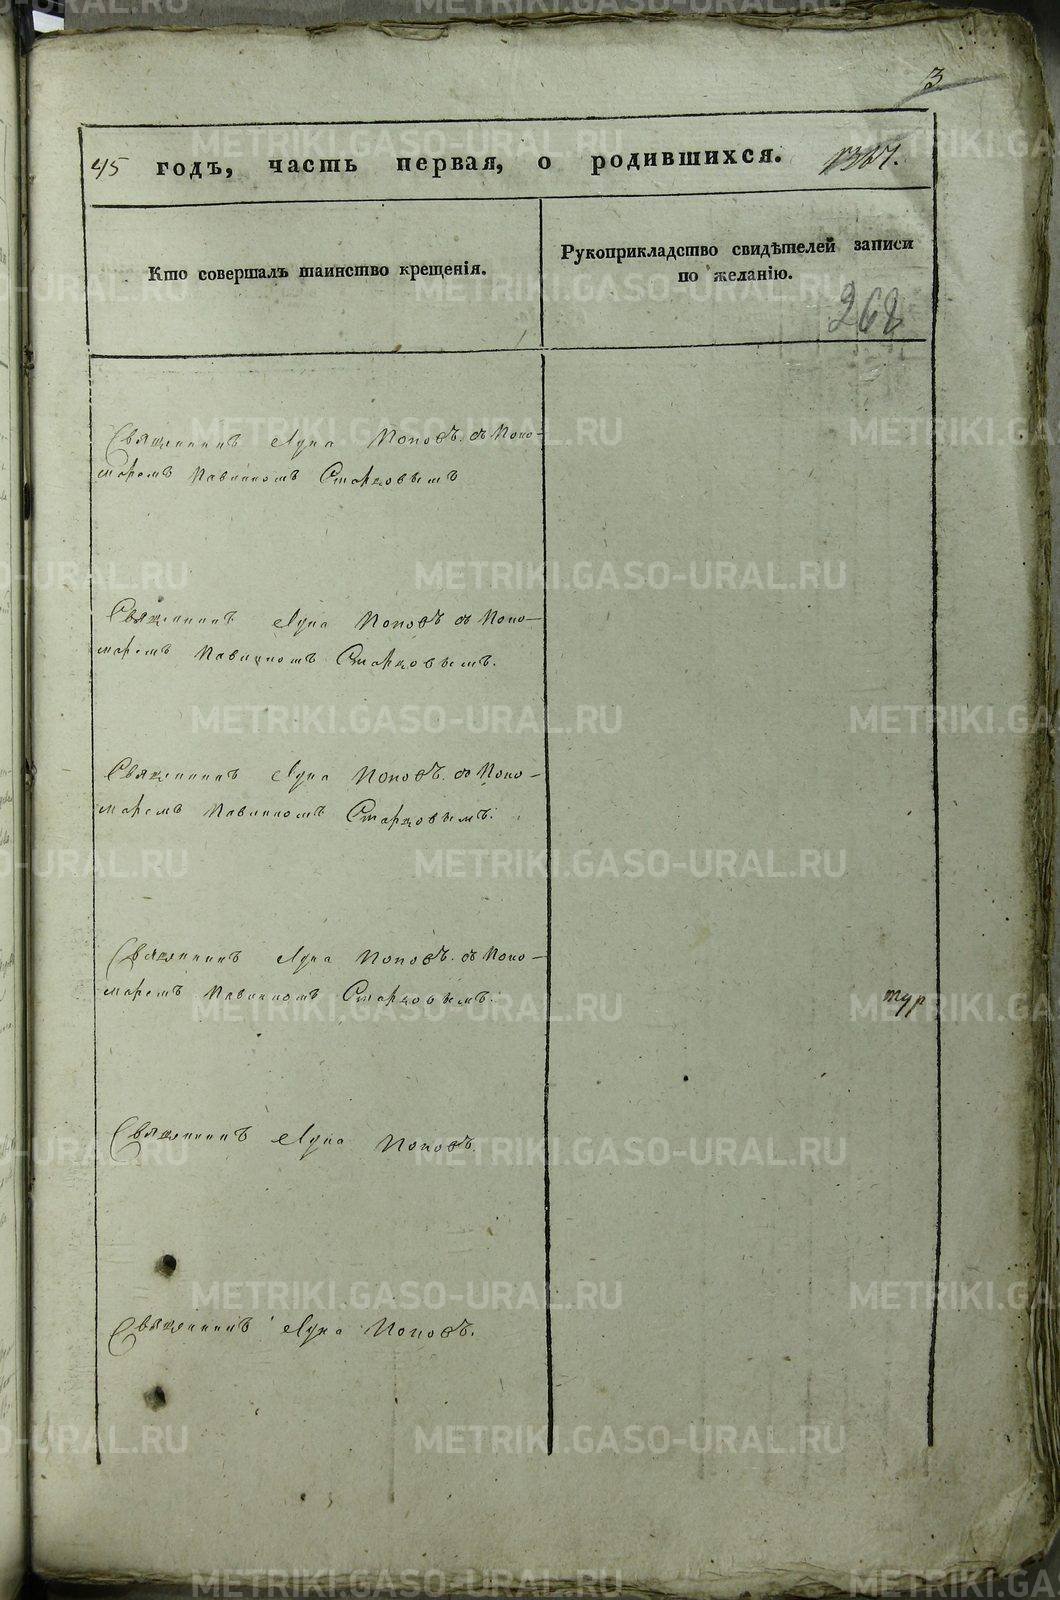 3
45 годъ, часть первая, о родившихся. 1367.
Кто совершалъ таинство крещенія.
Рукоприкладство свидѣтелей записи
по желанію.
268
Священникъ Лука Поповъ съ Поно-
маремъ Павиномъ Старцовымъ
Священникъ Лука Поповъ съ Поно-
маремъ Павиномъ Старцовымъ.
Священникъ Лука Поповъ съ Поно-
маремъ Павиномъ Старцовымъ.
Священникъ Лука Поповъ съ Поно-
маремъ Павиномъ Старцовымъ.
тур
Священникъ Лука Поповъ.
Священникъ Лука Поповъ.
METRIKI.GASO-URAL.RU